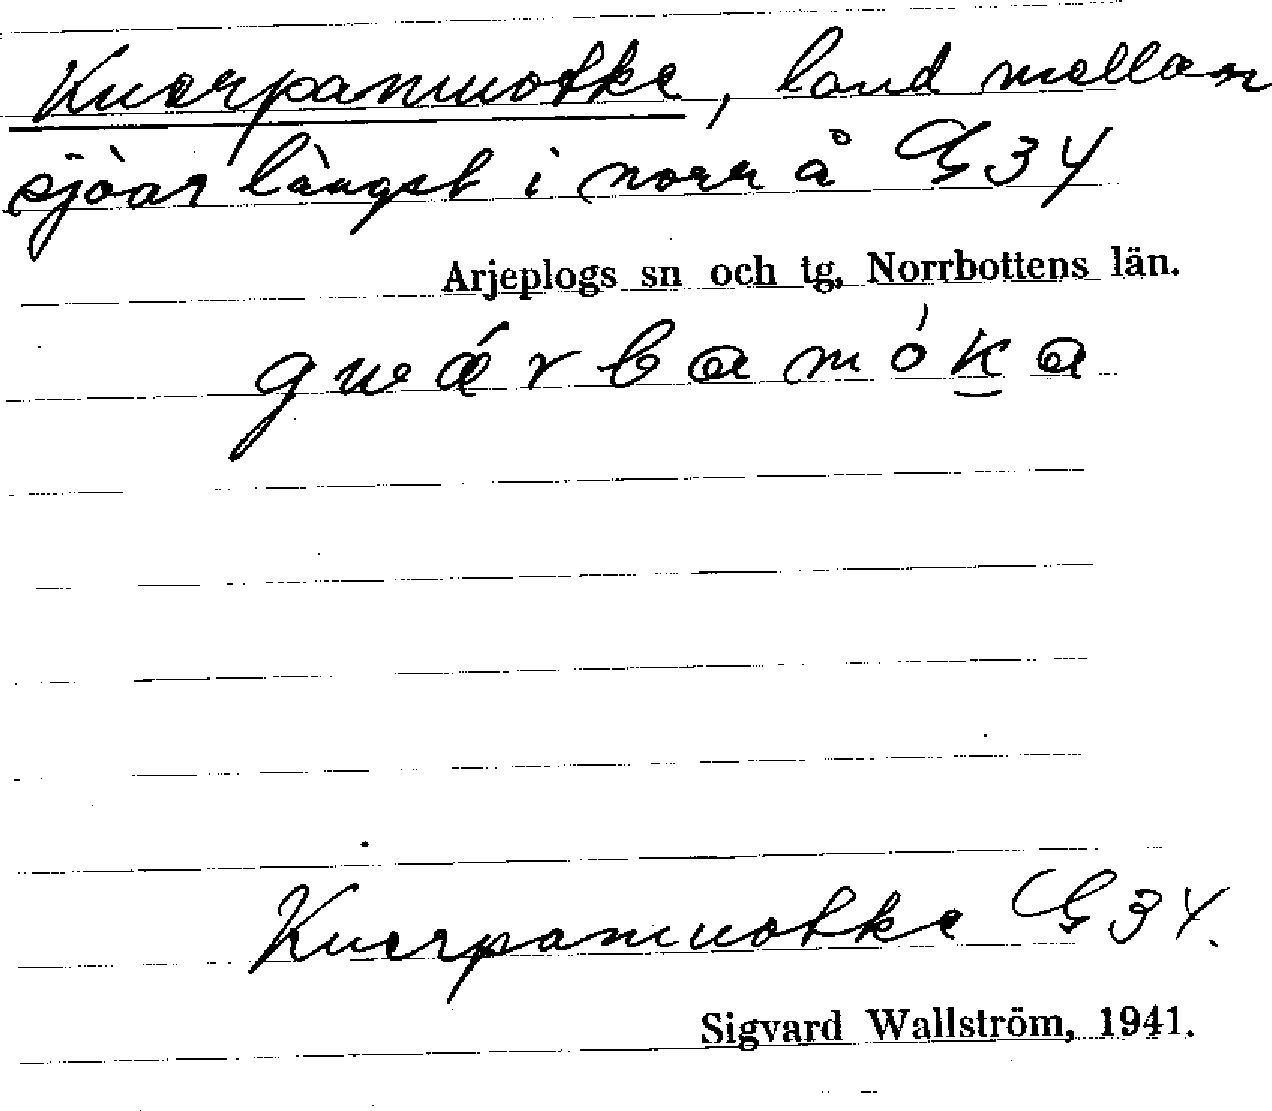 Kuerpamuotke, land mellan
sjöar längst i norr å G 34
Arjeplogs sn och tg, Norrbottens län.
Kuerpamuotke G 34.
Sigvard Wallström, 1941.